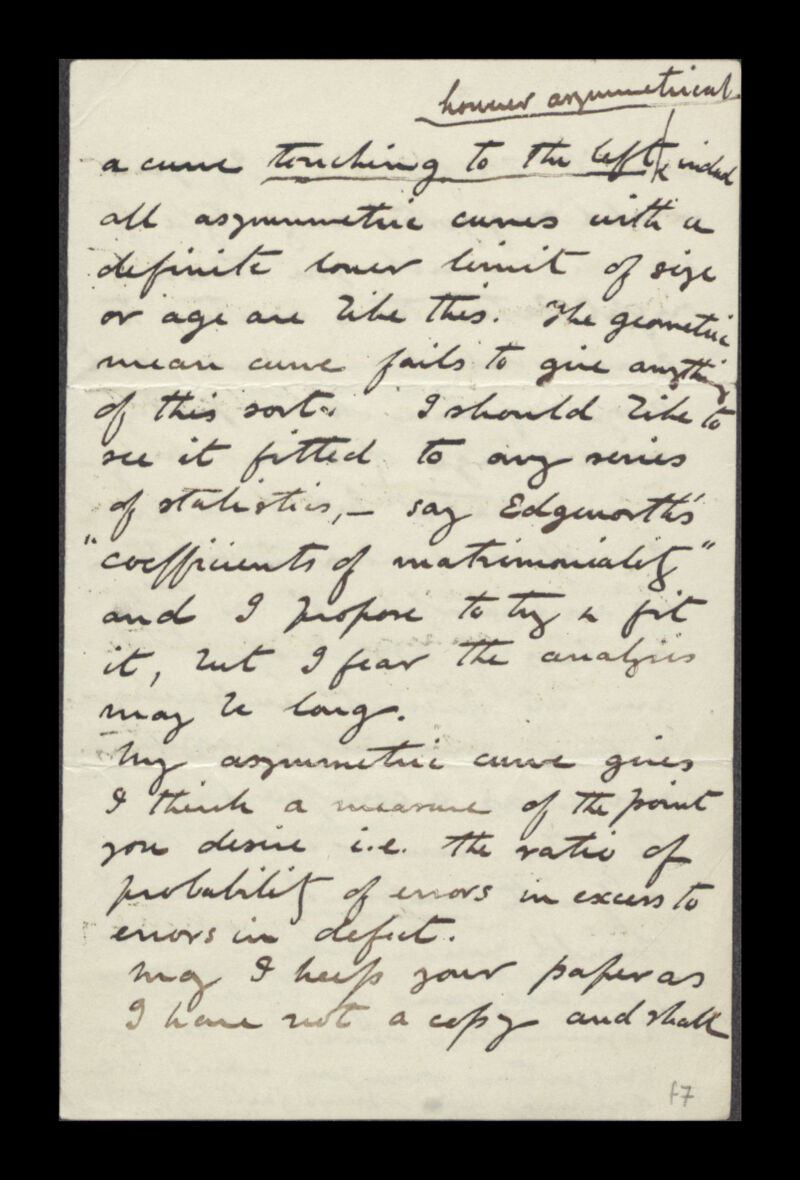 however asymmetrical
a curve touching to the left & indeed
all asymmetric curves with a
definite lower limit of size
or age are like this. The geometric
mean curve fails to give anything
of this sort. I should like to
see it fitted to any series
of statistics, — say Edgeworth's
"coefficients of matrimoniality"
and I propose to try & fit
it, but I fear the analysis
may be long.
My asymmetric curve gives
I think a measure of the point
you desire i.e. the ratio of
probability of errors in excess to
errors in defect.
May I keep your paper as
I have not a copy and shall
f7